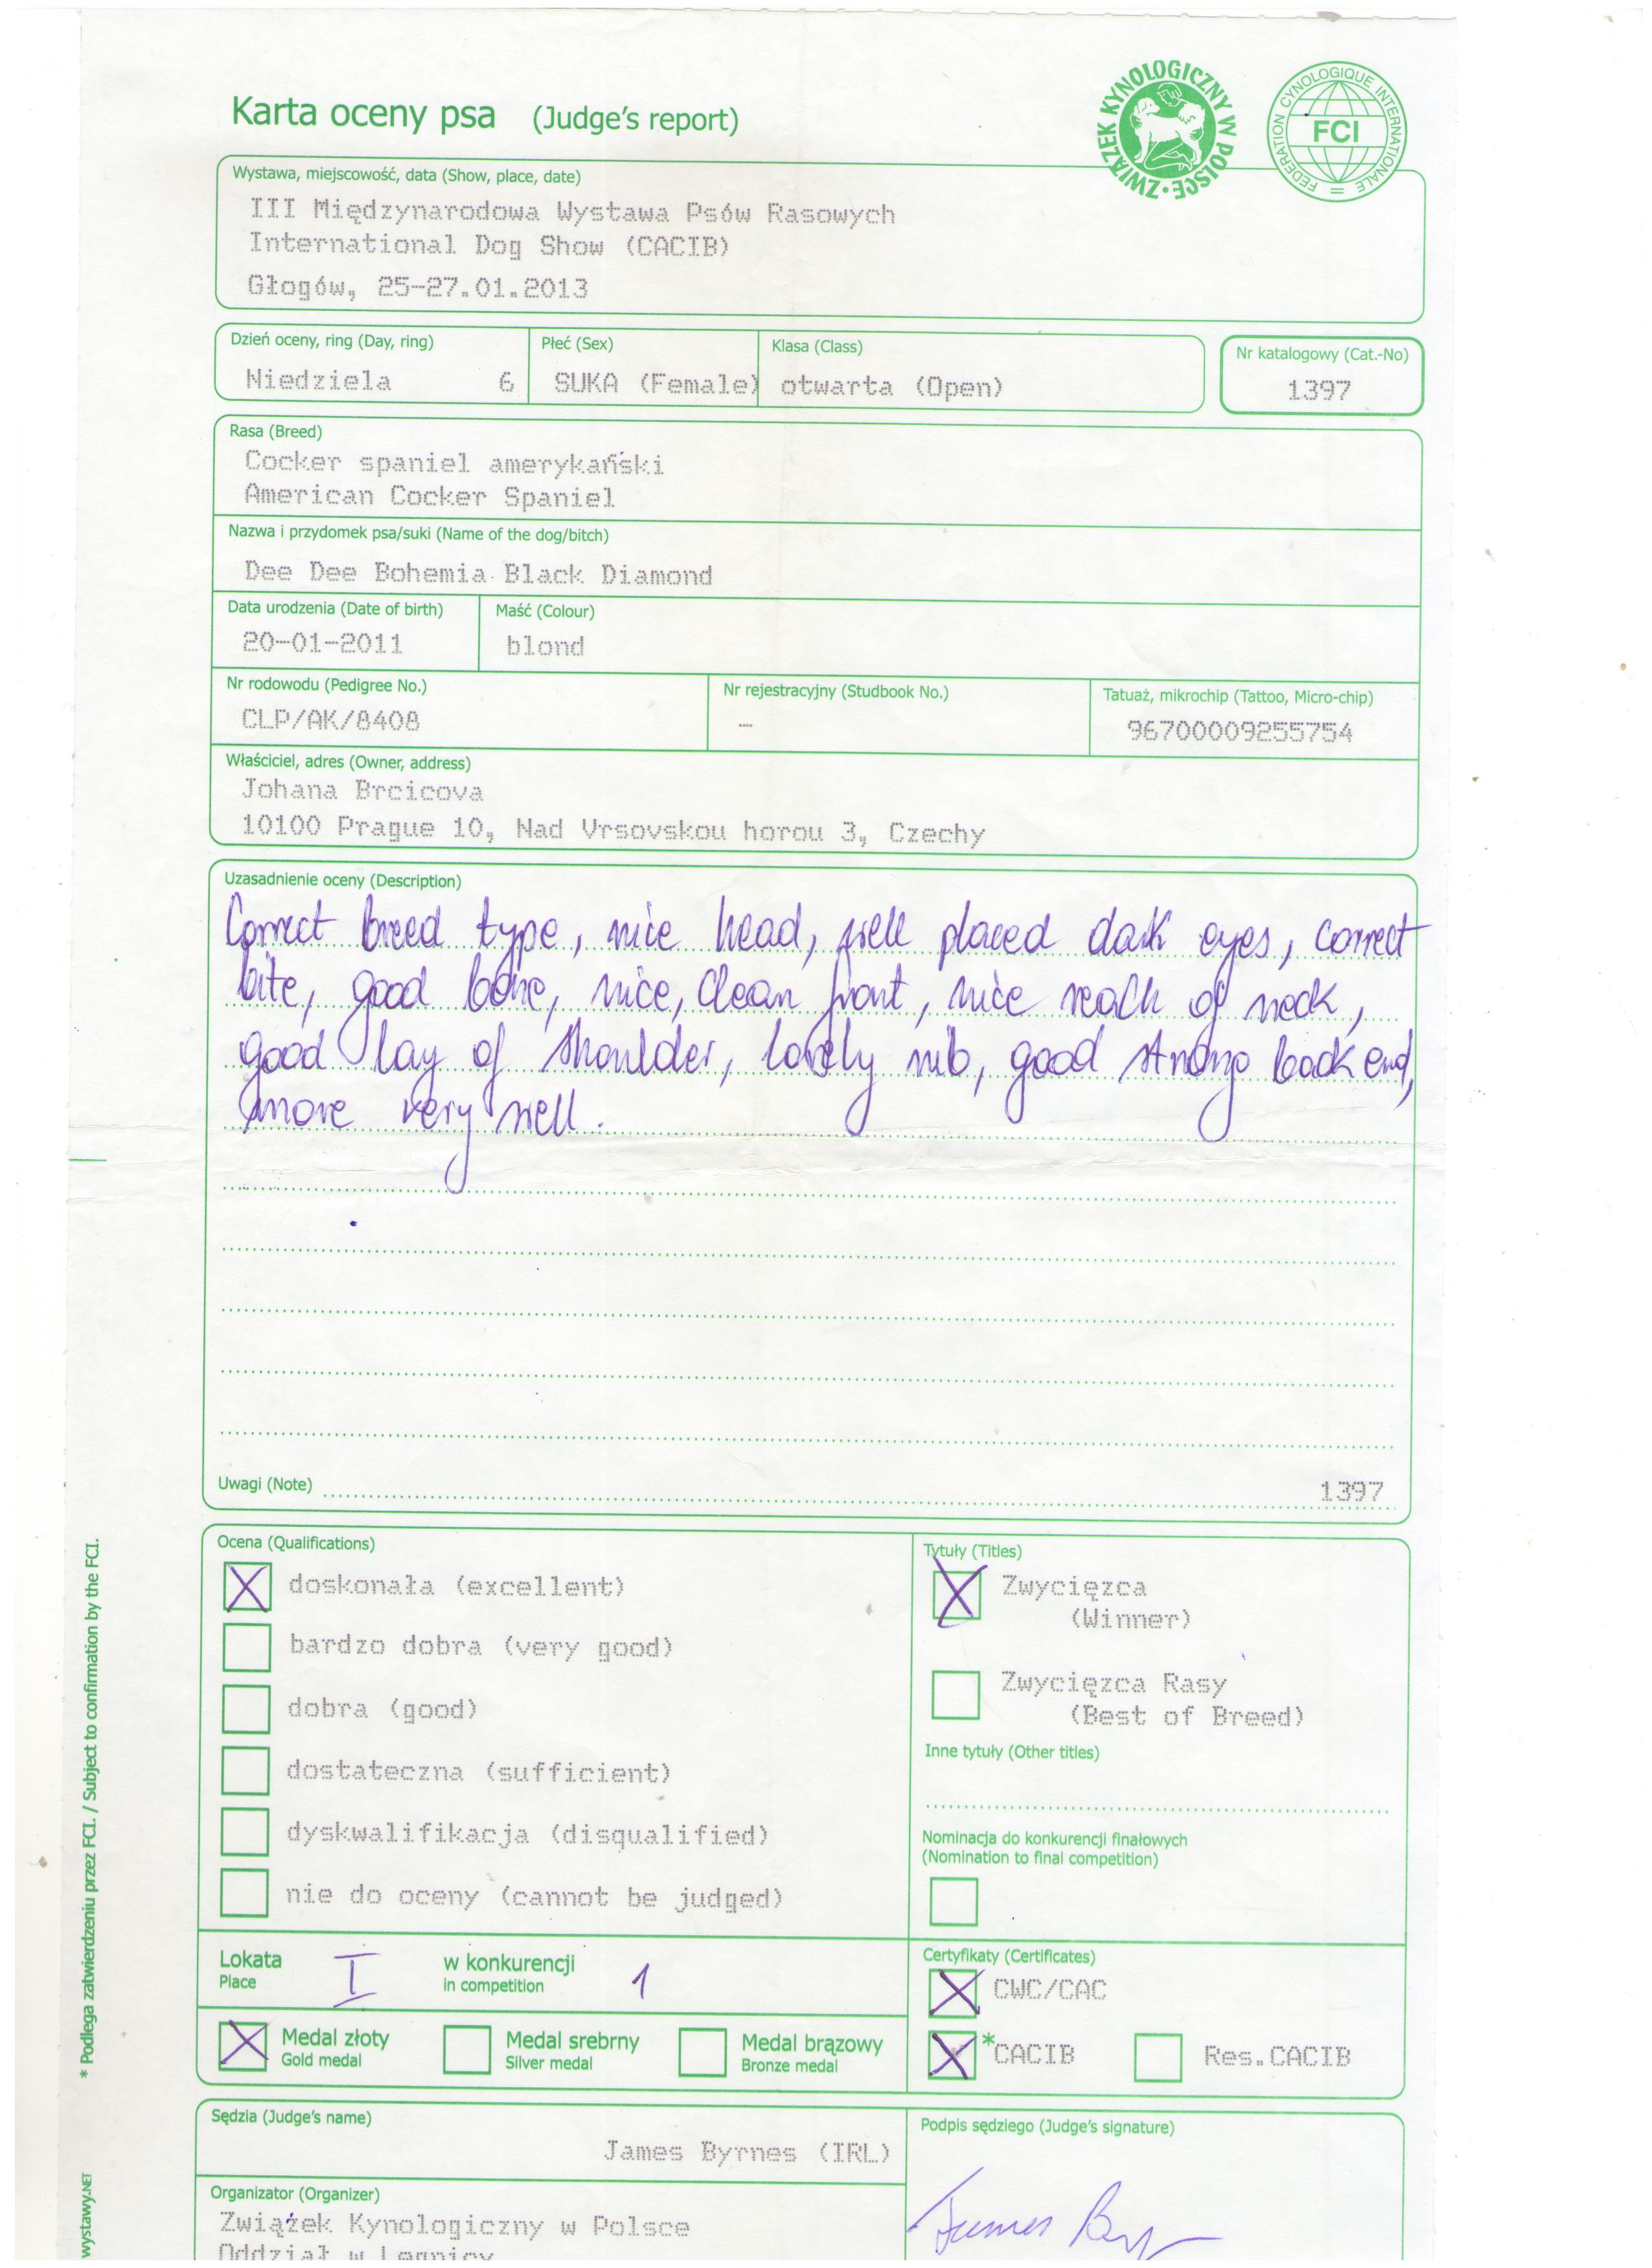 Karta oceny psa (Judge's report)
ZWIĄZEK KYNOLOGICZNY W POLSCE
FEDERATION CYNOLOGIQUE INTERNATIONALE
FCI
Wystawa, miejscowość, data (Show, place, date)
III Międzynarodowa Wystawa Psów Rasowych
International Dog Show (CACIB)
Głogów, 25-27.01.2013
Dzień oceny, ring (Day, ring) Płeć (Sex) Klasa (Class) Nr katalogowy (Cat.-No)
Niedziela 6 SUKA (Female) otwarta (Open) 1397
Rasa (Breed)
Cocker spaniel amerykański
American Cocker Spaniel
Nazwa i przydomek psa/suki (Name of the dog/bitch)
Dee Dee Bohemia Black Diamond
Data urodzenia (Date of birth) Maść (Colour)
20-01-2011 blond
Nr rodowodu (Pedigree No.) Nr rejestracyjny (Studbook No.) Tatuaż, mikrochip (Tattoo, Micro-chip)
CLP/AK/8408 — 96700009255754
Właściciel, adres (Owner, address)
Johana Brcicova
10100 Prague 10, Nad Vrsovskou horou 3, Czechy
Uzasadnienie oceny (Description)
Correct breed type, nice head, well placed dark eyes, correct
bite, good bone, nice, clean front, nice reach of neck,
good lay of shoulder, lovely rib, good strong back end,
move very well.
Uwagi (Note) 1397
Ocena (Qualifications) Tytuły (Titles)
doskonała (excellent) Zwycięzca
(Winner)
bardzo dobra (very good)
dobra (good) Zwycięzca Rasy
(Best of Breed)
dostateczna (sufficient) Inne tytuły (Other titles)
dyskwalifikacja (disqualified) Nominacja do konkurencji finałowych
(Nomination to final competition)
nie do oceny (cannot be judged)
Lokata I w konkurencji 1 Certyfikaty (Certificates)
Place in competition CWC/CAC
Medal złoty Medal srebrny Medal brązowy *CACIB Res.CACIB
Gold medal Silver medal Bronze medal
Sędzia (Judge's name) Podpis sędziego (Judge's signature)
James Byrnes (IRL)
Organizator (Organizer)
Związek Kynologiczny w Polsce James
Oddział w Legnicy
* Podlega zatwierdzeniu przez FCI. / Subject to confirmation by the FCI.
wystawy.NET